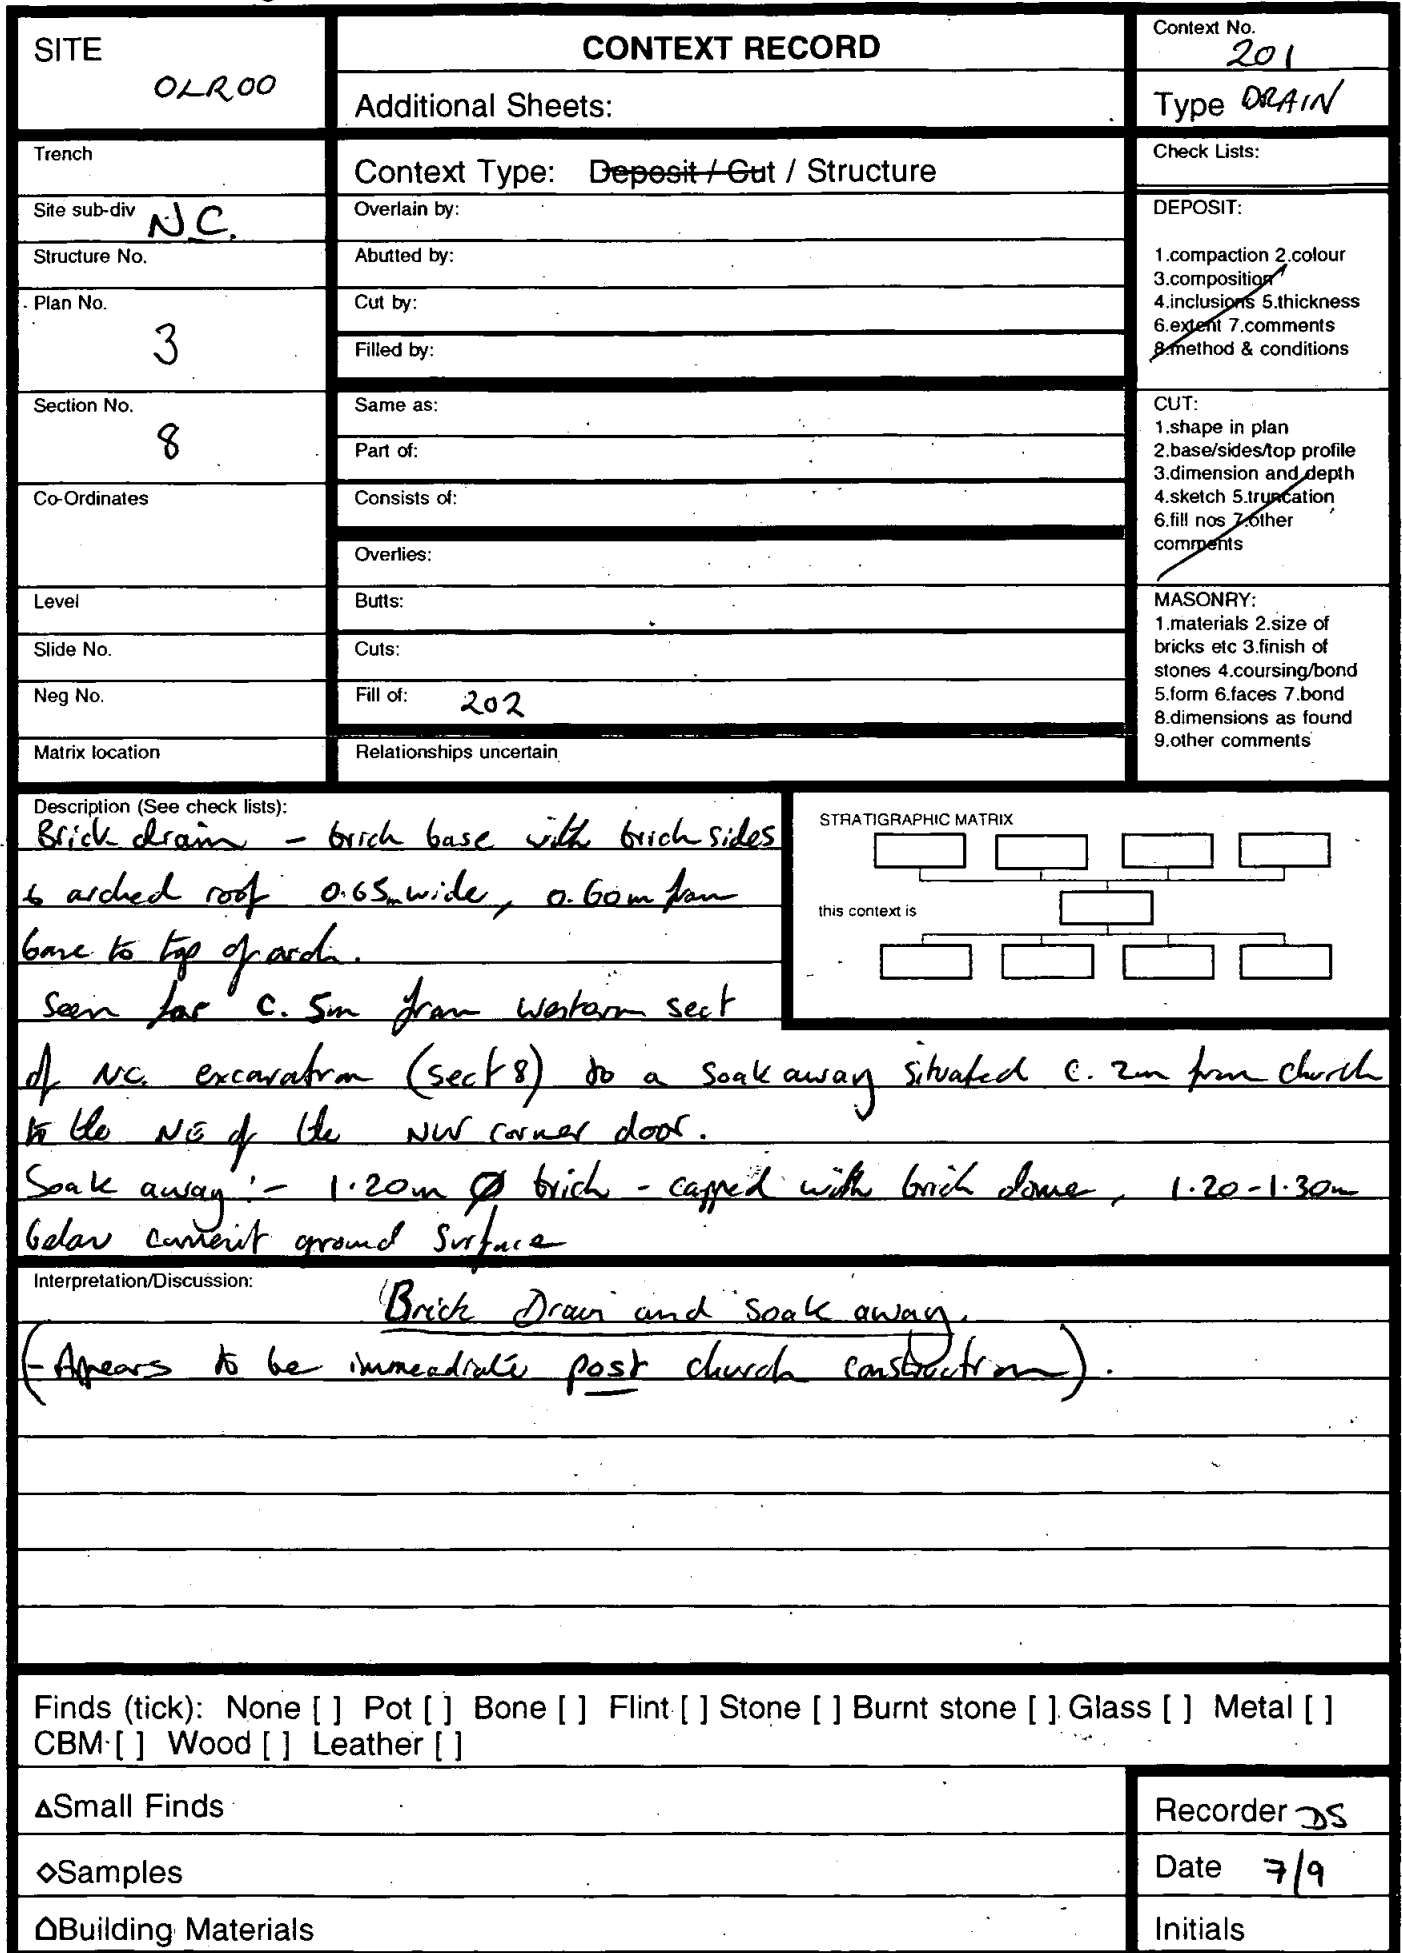 SITE
OLR00
CONTEXT RECORD
Additional Sheets:
Context No.
201
Type DRAIN
Trench
Site sub-div N.C.
Structure No.
Plan No.
3
Section No.
8
Co-Ordinates
Level
Slide No.
Neg No.
Matrix location
Context Type: Deposit / Cut / Structure
Overlain by:
Abutted by:
Cut by:
Filled by:
Same as:
Part of:
Consists of:
Overlies:
Butts:
Cuts:
Fill of: 202
Relationships uncertain
Check Lists:
DEPOSIT:
1.compaction 2.colour
3.composition
4.inclusions 5.thickness
6.extent 7.comments
8.method & conditions
CUT:
1.shape in plan
2.base/sides/top profile
3.dimension and depth
4.sketch 5.truncation
6.fill nos 7.other
comments
MASONRY:
1.materials 2.size of
bricks etc 3.finish of
stones 4.coursing/bond
5.form 6.faces 7.bond
8.dimensions as found
9.other comments
Description (See check lists):
Brick drain - brick base with brick sides
& arched roof 0.65m wide, 0.60m from
base to top of arch.
Seen for c. 5m from western sect
of NC. excavation (sect 8) to a soak away situated c. 2m from church
to the NE of the NW corner door.
Soak away :- 1.20m Ø brick - capped with brick dome, 1.20-1.30m
below current ground surface
STRATIGRAPHIC MATRIX
this context is
Interpretation/Discussion:
Brick Drain and soak away.
(- Appears to be immeadiate post church construction).
Finds (tick): None [ ] Pot [ ] Bone [ ] Flint [ ] Stone [ ] Burnt stone [ ] Glass [ ] Metal [ ]
CBM [ ] Wood [ ] Leather [ ]
△Small Finds
◇Samples
⌂Building Materials
Recorder DS
Date 7/9
Initials